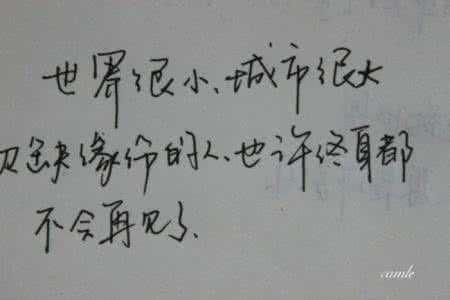 世界很小、城市很大
缺缘份的人、也许终身都
不会再见了、
camle